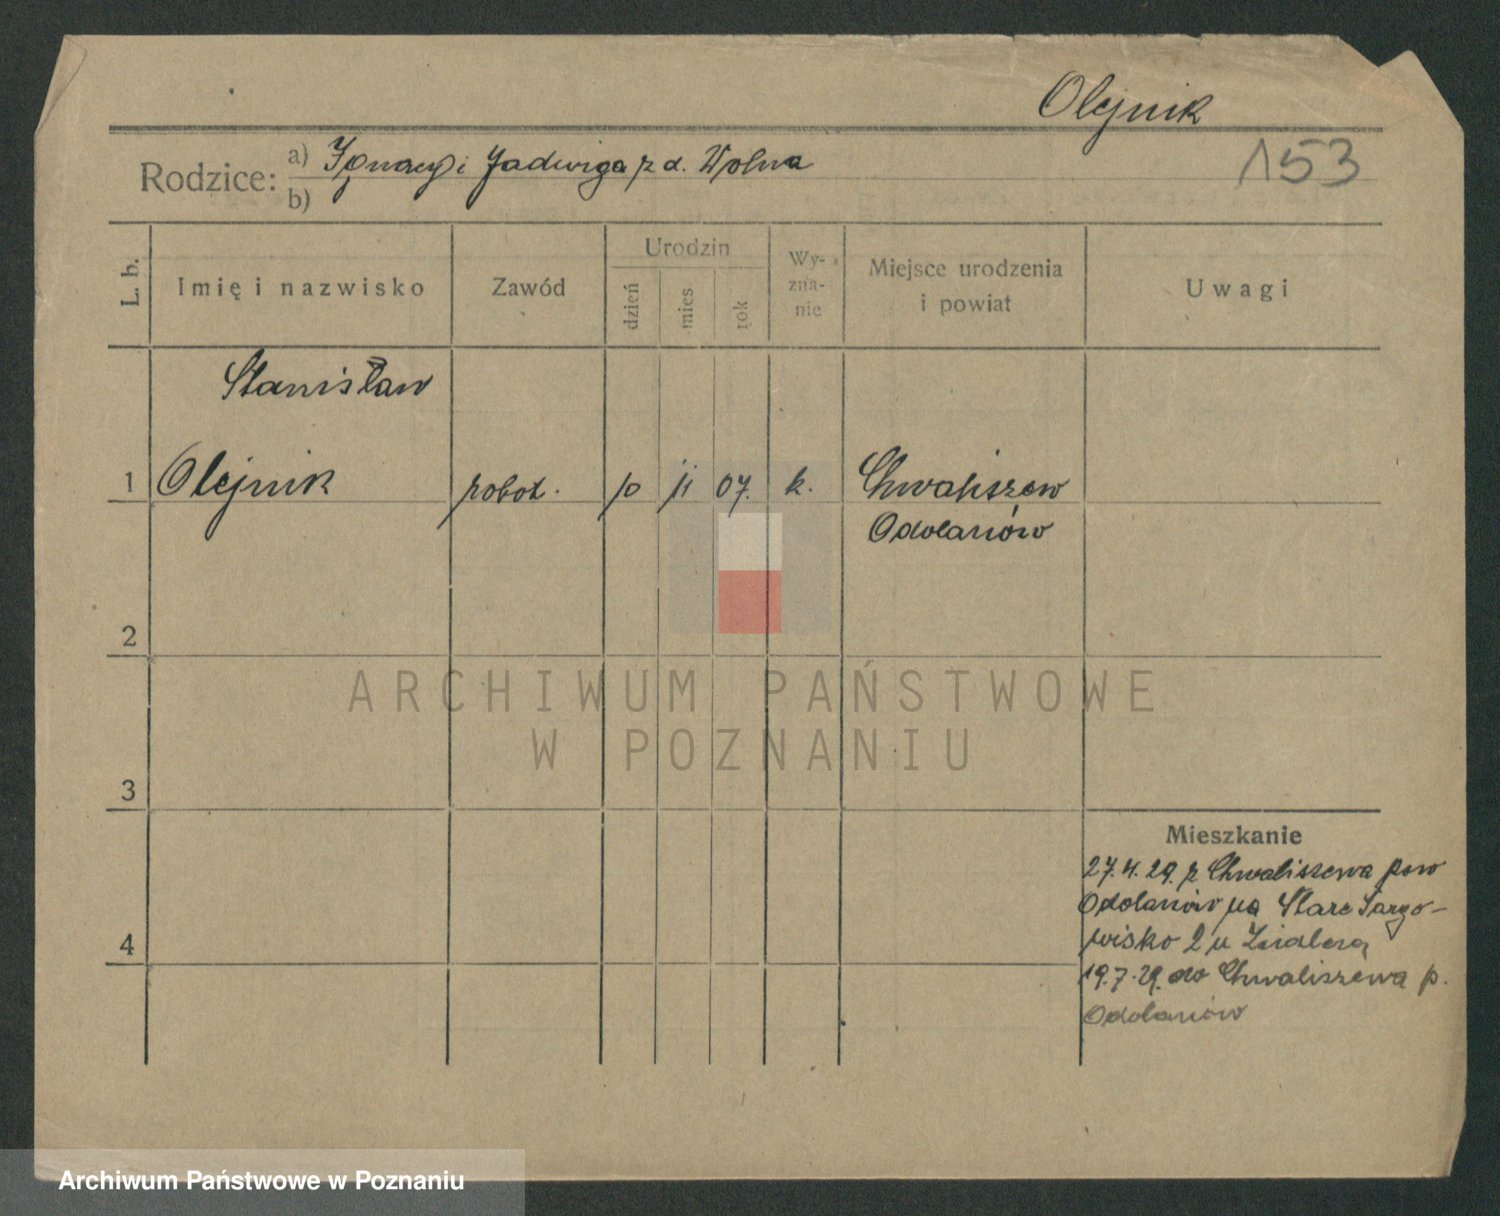 Olejnik
153
Rodzice: a) Ignacy i Jadwiga z d. Wolna
b)
L. b.
Imię i nazwisko
Zawód
Urodzin
dzień
mies
rok
Wy-
zna-
nie
Miejsce urodzenia
i powiat
Uwagi
Stanisław
1 Olejnik robot. 10 11 07. k. Chwaliszew
Odolanów
2
3
4
Mieszkanie
27.4.29. z Chwaliszewa pow
Odolanów na Stare Targo-
wisko 2 u
19.7.29. do Chwaliszewa p.
Odolanów
ARCHIWUM PAŃSTWOWE
W POZNANIU
Archiwum Państwowe w Poznaniu